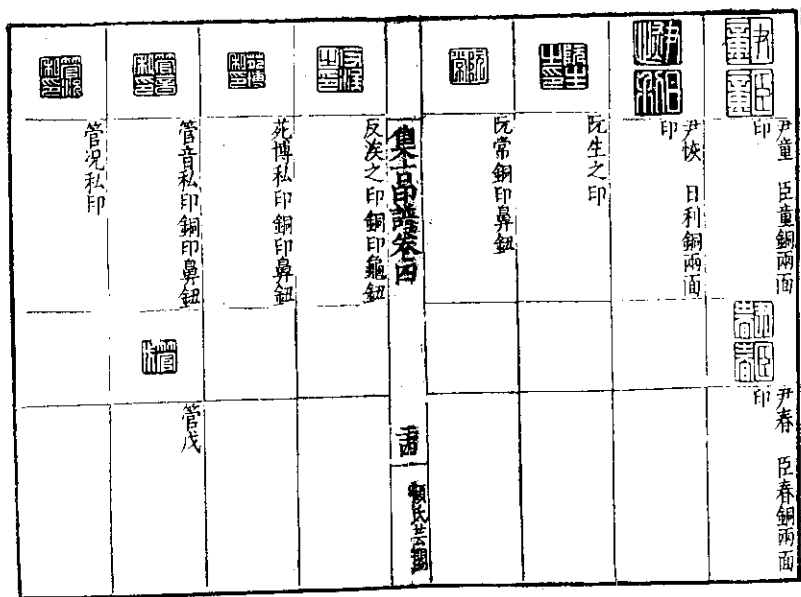 尹童 臣童銅兩面
印
尹春 臣春銅兩面
印
尹 日利銅兩面
印
阮生之印
阮常銅印鼻鈕
集古印譜卷四
顧氏芸閣
反之印銅印龜鈕
苑博私印銅印鼻鈕
管音私印銅印鼻鈕
管戊
管况私印